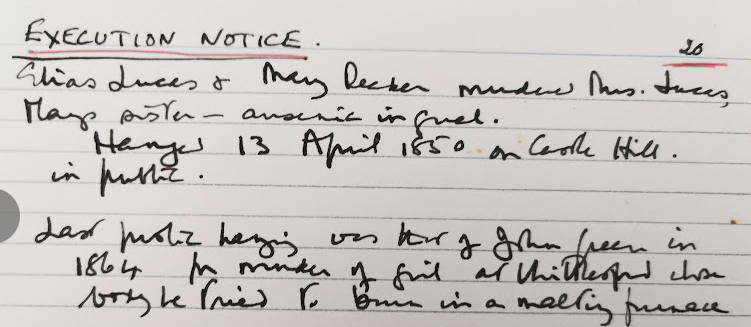 EXECUTION NOTICE.
20
Elias Lucas & Mary Reeder murdered Mrs. Lucas,
Marys sister – arsenic in gruel.
Hanged 13 April 1850 on Castle Hill.
in public.
Last public hanging was that of John Green in
1864 for murder of girl at Whittlesford whose
body he tried to burn in a malting furnace